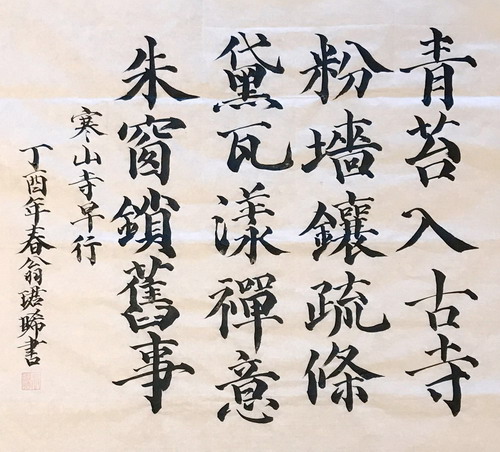 青苔入古寺
粉墻鑲疏條
黛瓦漾禪意
朱窗鎖舊事
寒山寺早行
丁酉年春翁晞書